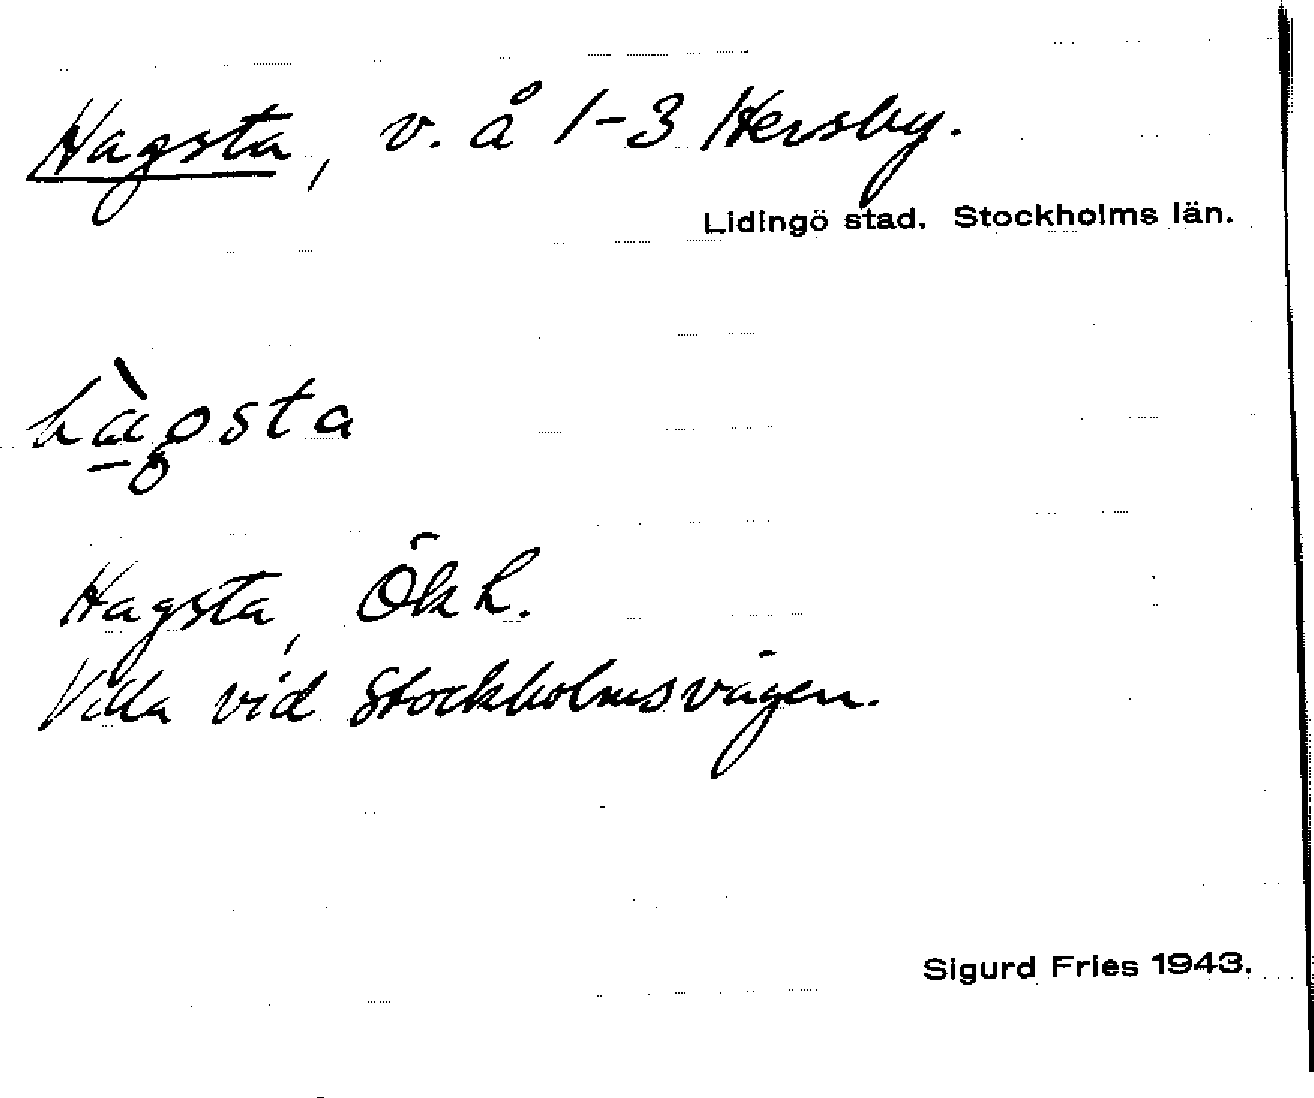 Hagsta, v. å 1-3 Hersby.
Lidingö stad. Stockholms län.
hàgsta
Hagsta, Ök h.
Villa vid Stockholmsvägen.
Sigurd Fries 1943.